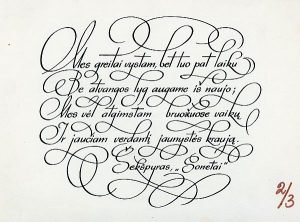 Mes greitai vystam, bet tuo pat laiku
Be atvangos lyg augame iš naujo;
Mes vėl atgimstam bruožuose vaikų
Ir jaučiam verdantį jaunystės kraują.
Šekspyras, „Sonetai"
2/3